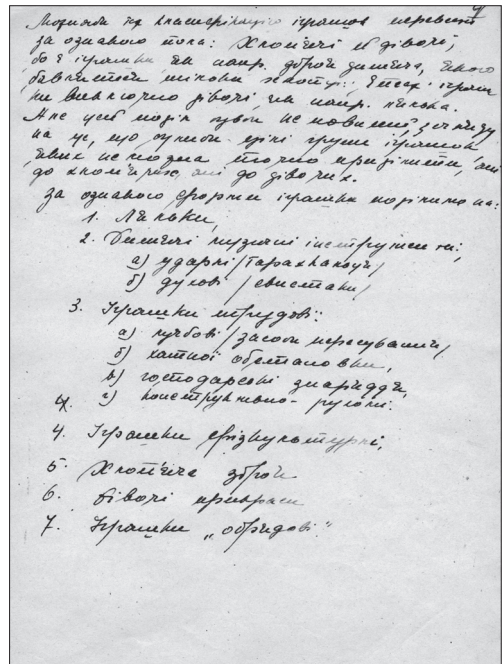 Можлива ще класифікація іграшок перевести
за ознакою пола: Хлоп'ячі й дівочі,
бо є іграшки як напр. дитяча,
бавляться тільки хлопці. Є теж іграш
ки виключно дівочі, як напр. лялька.
Але цей поділ не повний, з огляду
на це, що цілі групи іграшок
яких не можна точно приділити, ані
до хлоп'ячих, ані до дівочих.
За ознакою форми іграшки поділимо на:
1. Ляльки,
2. Дитячі музичні інструменти:
а) ударні /тарахкальця/
б) духові /свистани/
3. Іграшки трудові:
а) /засоби пересування/
б) хатної обстановки,
в) господарські знаряддя,
4. г) конструктивно-рухомі.
4. Іграшки фізкультурні,
5. Хлоп'яча зброя
6. Дівочі прикраси
7. Іграшки „обрядові".